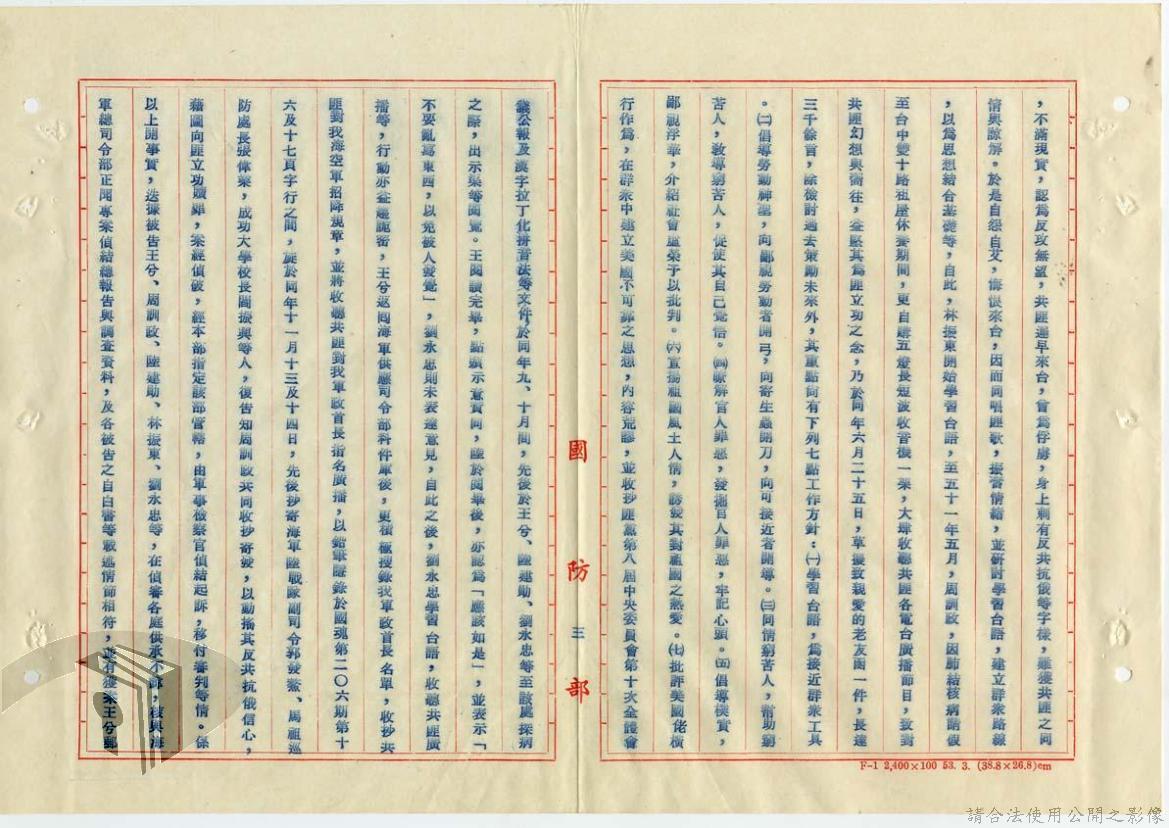 ，不滿現實，認為反攻無望，共匪遲早來台，曾為俘虜，身上刺有反共抗俄等字樣，雖獲共匪之同
情與諒解。於是自怨自艾，悔恨來台，因而同唱匪歌，振奮情緒，並研討學習台語，建立群眾路線
，以為思想結合基礎等，自此，林振東開始學習台語，至五十一年五月，周訓政，因肺結核病請假
至台中雙十路租屋休養期間，更自購五燈長短波收音機一架，大肆收聽共匪各電台廣播節目，致對
共匪幻想與嚮往，益堅其為匪立功之念，乃於同年六月二十五日，草擬致親愛的老友函一件，長達
三千餘言，除檢討過去策勵未來外，其重點尚有下列七點工作方針：㈠學習台語，為接近群眾工具
。㈡倡導勞動神聖，向鄙視勞動者開弓，向寄生蟲開刀，向可接近者開導。㈢同情窮苦人，幫助窮
苦人，教導窮苦人，促使其自己覺悟。㈣瞭解官人罪惡，發掘官人罪惡，牢記心頭。㈤倡導樸實，
鄙視浮華，介紹社會虛榮予以批判。㈥宣揚祖國風土人情，誘發其對祖國之熱愛。㈦批評美國佬橫
行作為，在群眾中建立美國不可靠之思想，內容荒謬，並收抄匪黨第八屆中央委員會第十次全體會
議公報及漢字拉丁化拼音法等文件於同年九、十月間，先後於王兮、陸建勛、劉永忠等至該處探病
之際，出示渠等閱覽。王閱讀完畢，點頭示意贊同，陸於閱畢後，亦認為「應該如是」，並表示「
不要亂寫東西，以免被人發覺」，劉永忠則未表達意見，自此之後，劉永忠學習台語，收聽共匪廣
播等，行動亦益趨詭密，王兮返回海軍供應司令部料件庫後，更積極搜錄我軍政首長名單，收抄共
匪對我海空軍招降規章，並將收聽共匪對我軍政首長指名廣播，以鉛筆隱錄於國魂第二〇六期第十
六及十七頁字行之間，旋於同年十一月十三及十四日，先後抄寄海軍陸戰隊副司令郭發鰲、馬祖巡
防處長張偉業，成功大學校長閻振興等人，復告知周訓政共同收抄寄發，以動搖其反共抗俄信心，
藉圖向匪立功贖罪，案經偵破，經本部指定該部管轄，由軍事檢察官偵結起訴，移付審判等情。係
以上開事實，迭據被告王兮、周訓政、陸建勛、林振東、劉永忠等，在偵審各庭供承不諱，核與海
軍總司令部正聞專案偵結總報告與調查資料，及各被告之自白書等載述情節相符，並有獲案王兮郵
國防部
三
F-1 2,400×100 53. 3. (38.8×26.8)cm
請合法使用公開之影像